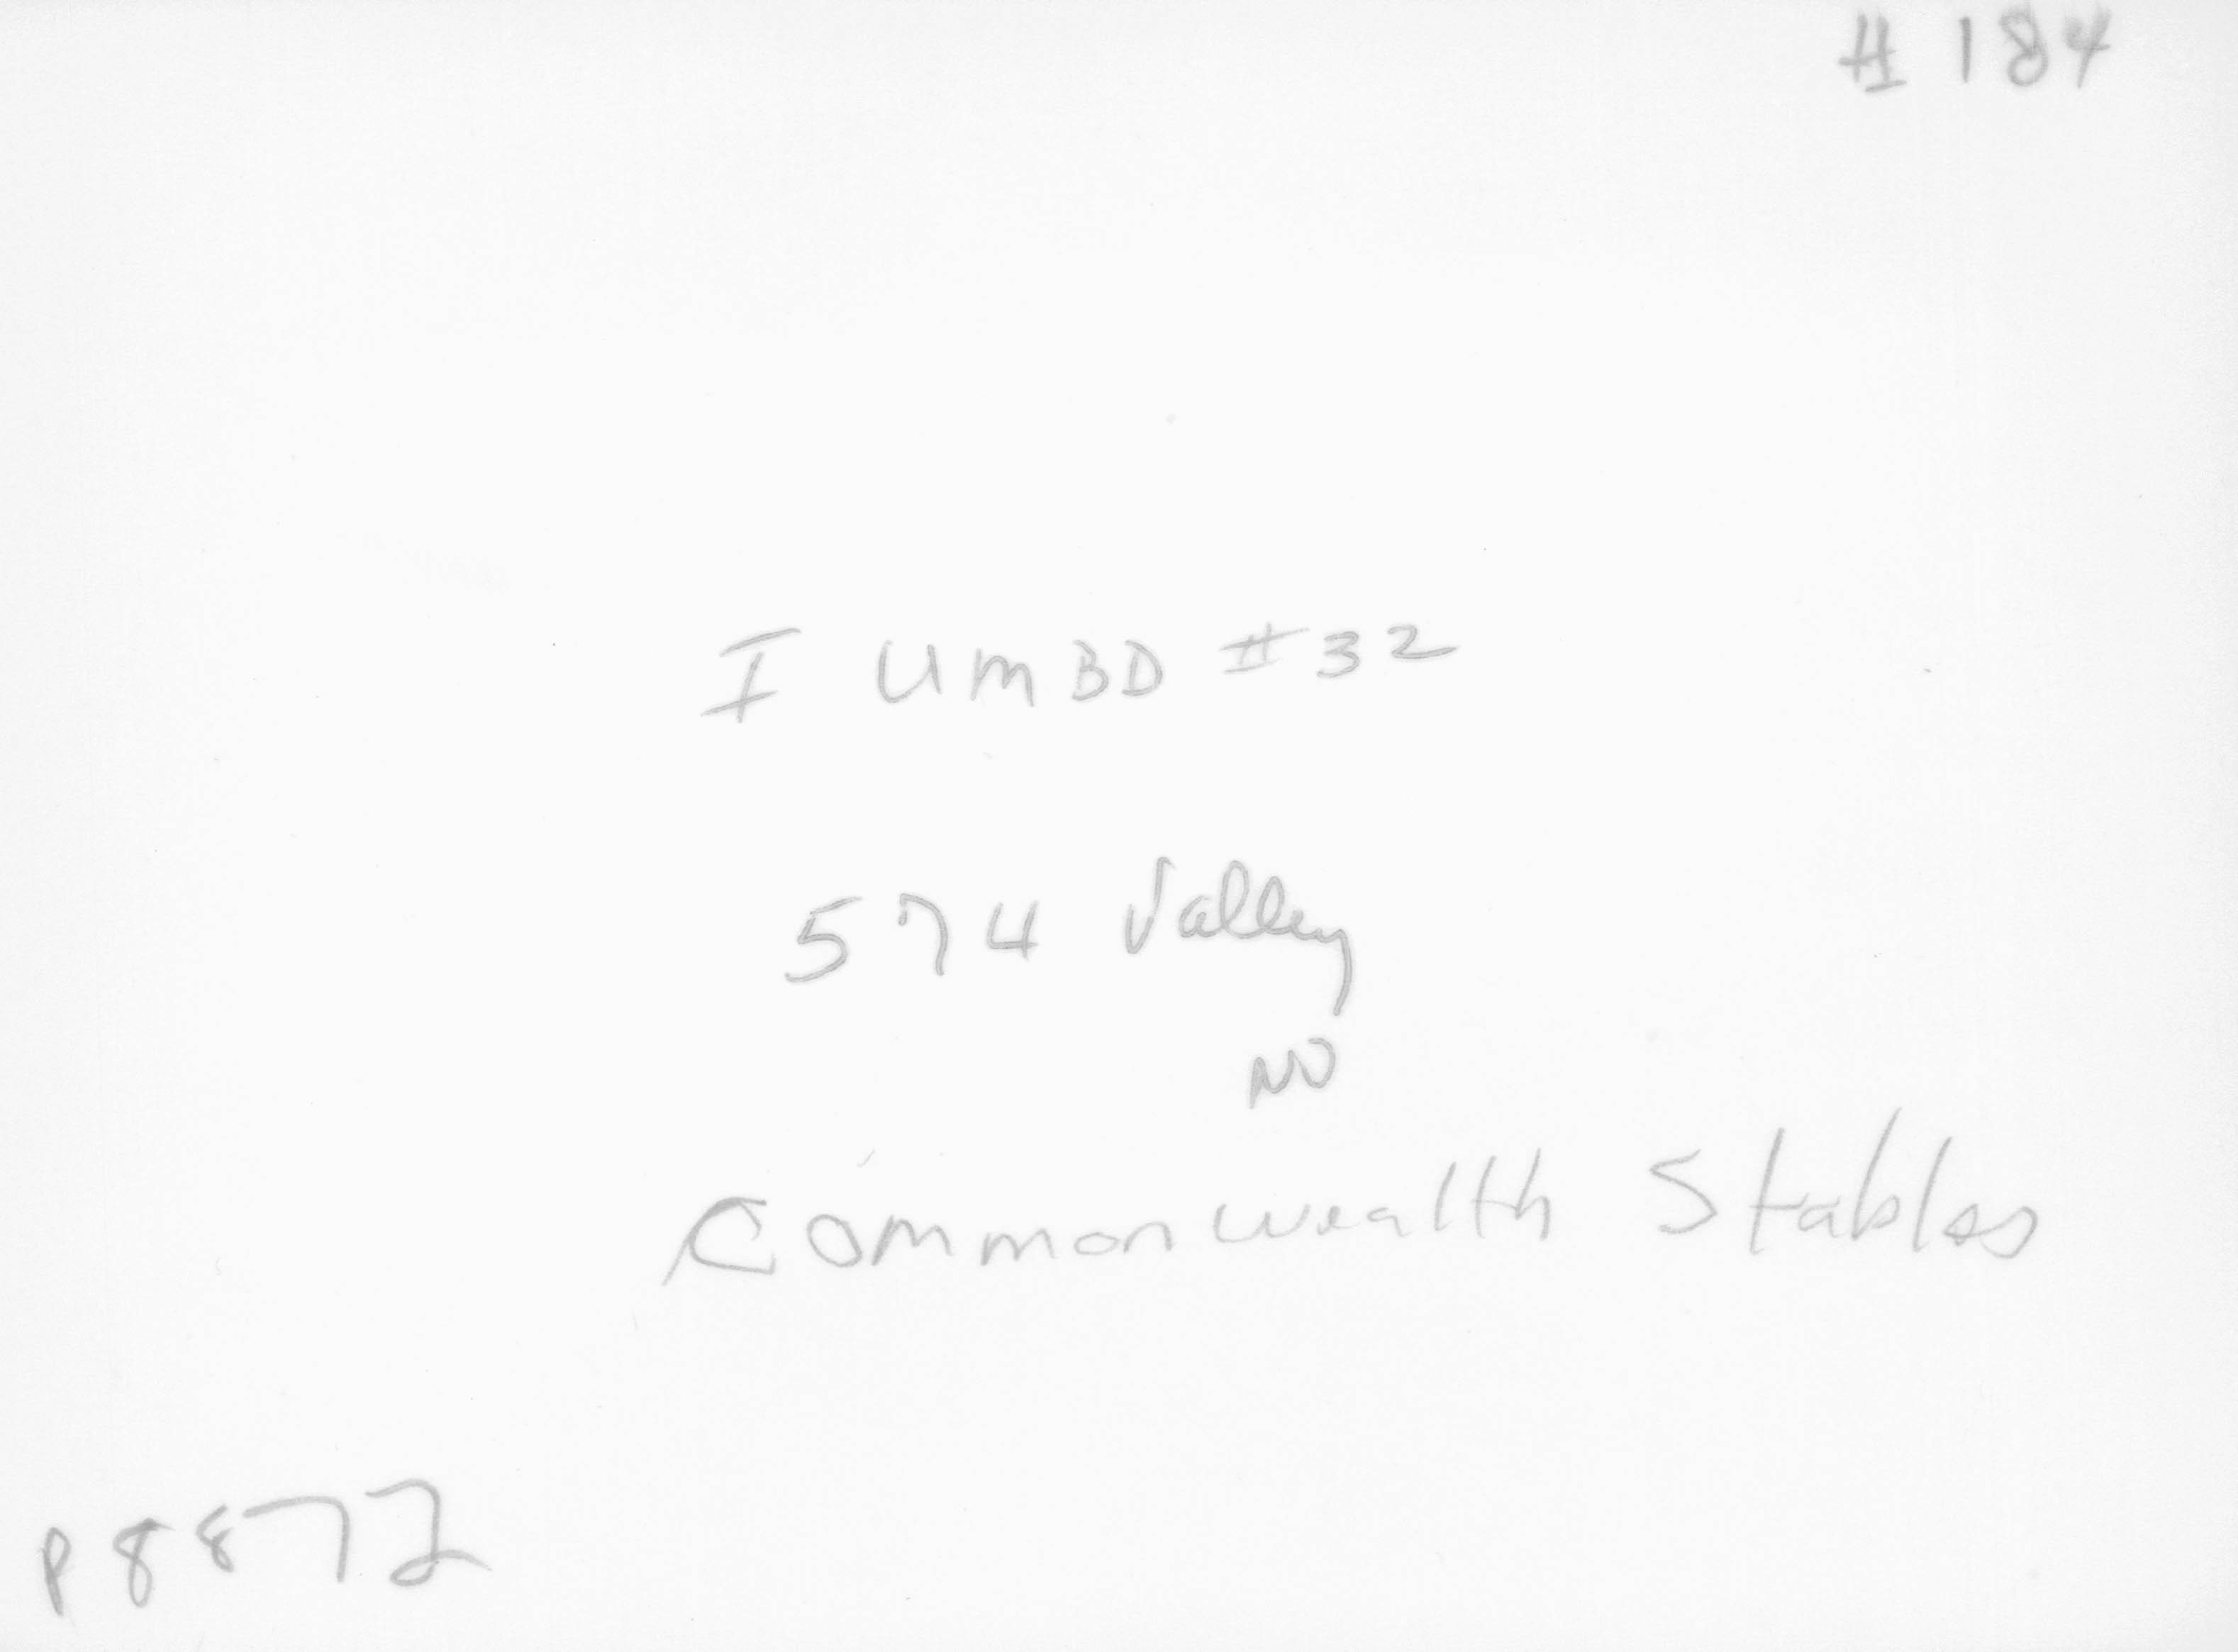 # 184
I UMBD #32
574 Valley
NO
Commonwealth Stables
P8872